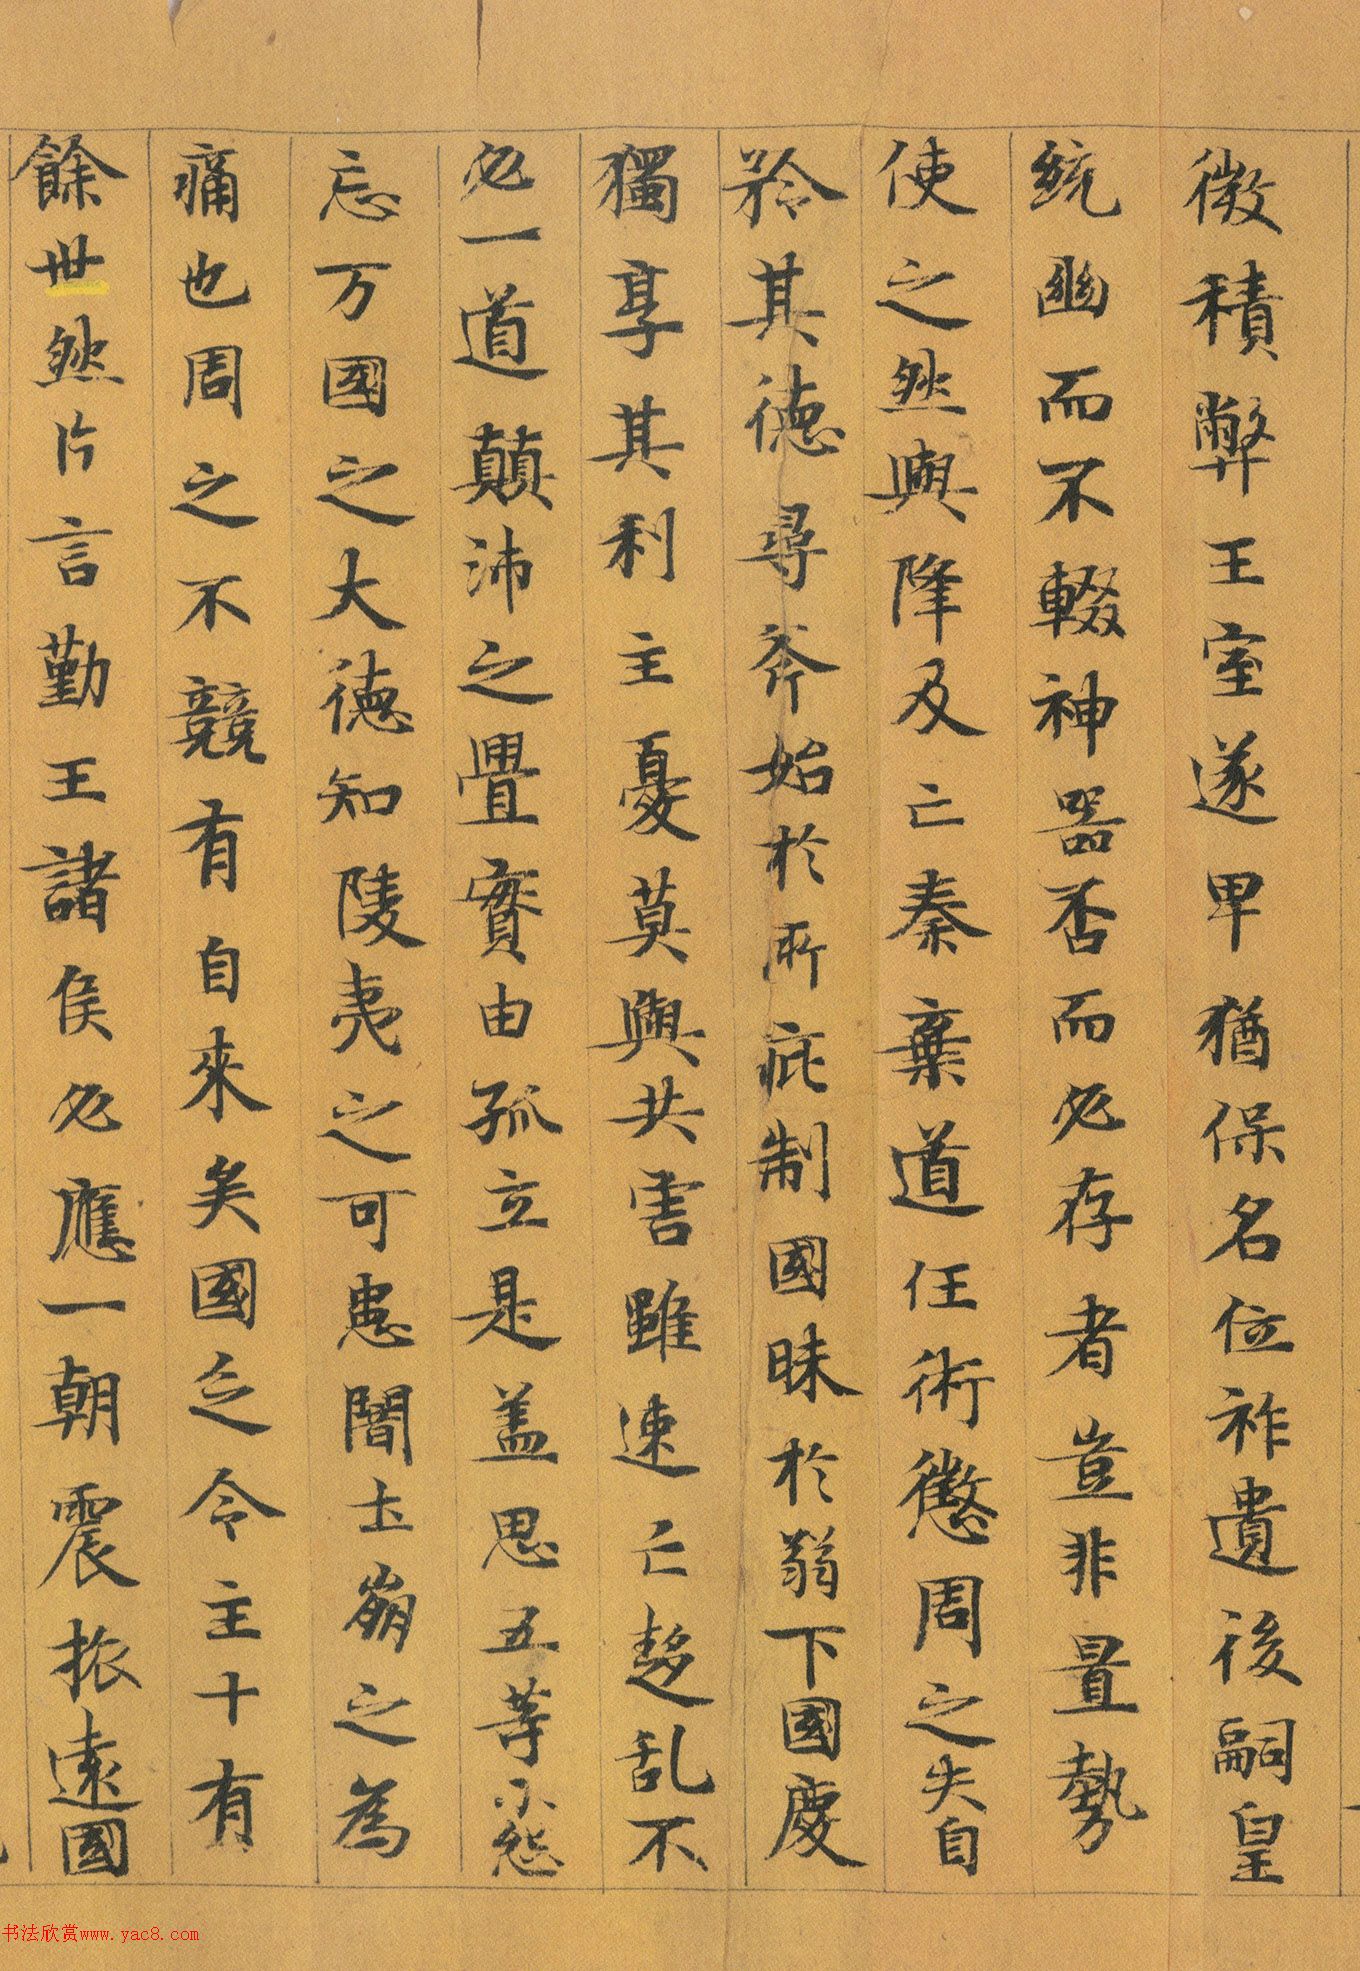 微積弊王室遂卑猶保名位祚遺後嗣皇
統幽而不輟神器否而必存者豈非置勢
使之然與降及亡秦棄道任術懲周之失自
矜其德尋斧始於所庇制國昧於弱下國慶
獨享其利主憂莫與共害雖速亡趍乱不
必一道顛沛之舋實由孤立是盖思五等小怨
忘万國之大德知陵夷之可患闇土崩之為
痛也周之不競有自来矣國乏令主十有
餘世然片言勤王諸侯必應一朝震振遠國
书法欣赏www.yac8.com